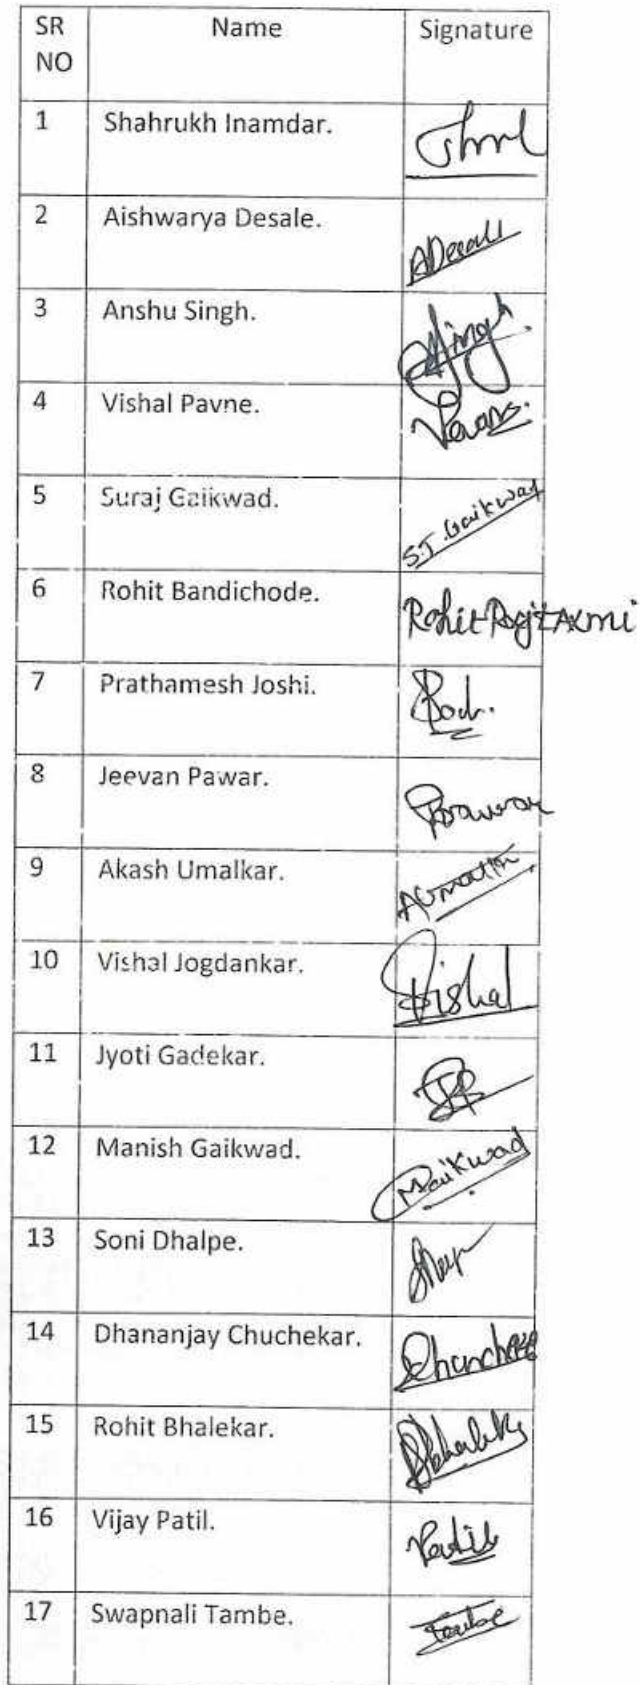 SR NO Name Signature
1 Shahrukh Inamdar.
2 Aishwarya Desale. ADesale
3 Anshu Singh. Singh.
4 Vishal Pavne.
5 Suraj Gaikwad. S.J. Gaikwad
6 Rohit Bandichode. Rohit
7 Prathamesh Joshi.
8 Jeevan Pawar.
9 Akash Umalkar.
10 Vishal Jogdankar. Vishal
11 Jyoti Gadekar.
12 Manish Gaikwad. MGaikwad
13 Soni Dhalpe.
14 Dhananjay Chuchekar.
15 Rohit Bhalekar.
16 Vijay Patil. Patil
17 Swapnali Tambe. Tambe